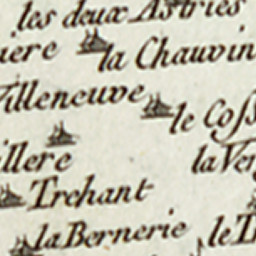 les deux Astries
iere la Chauvin
Villeneuve
le Coſſ
illere la Ver
Trehant
la Bernerie le Tr